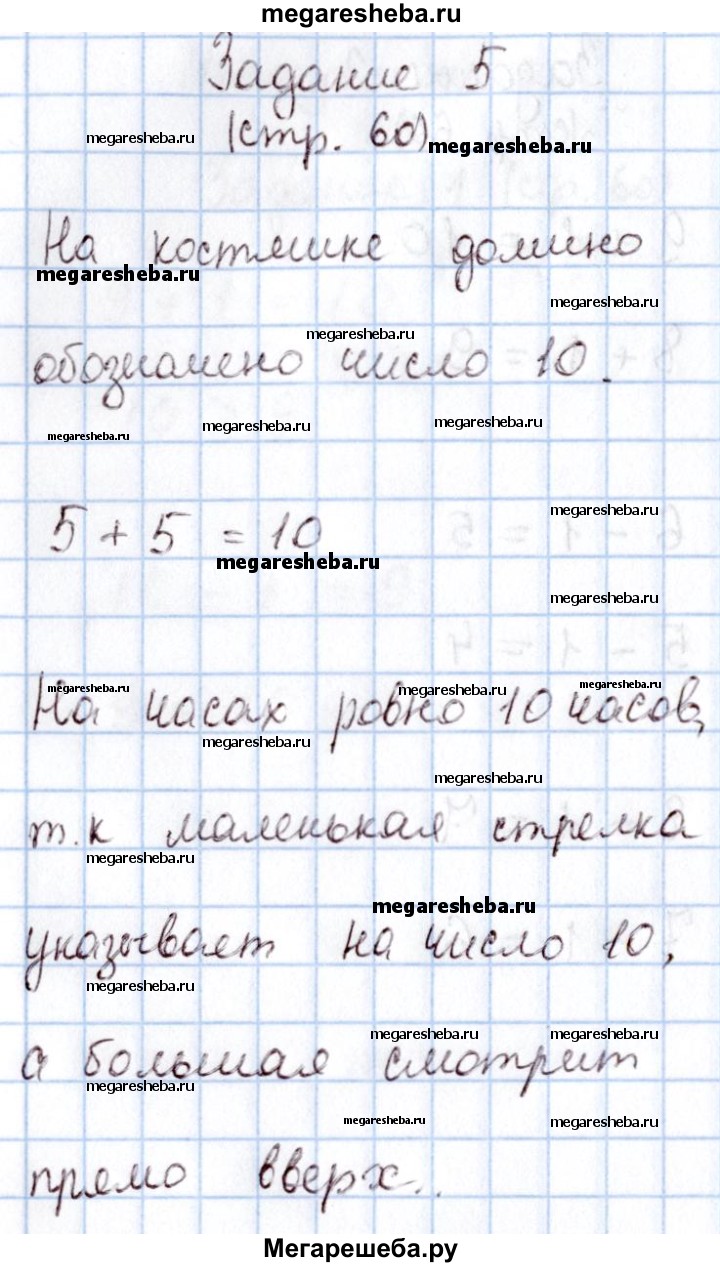 megaresheba.ru
Задание 5
megaresheba.ru (стр. 60) megaresheba.ru
На костяшке домино
megaresheba.ru
megaresheba.ru
megaresheba.ru
обозначено число 10.
megaresheba.ru megaresheba.ru megaresheba.ru
megaresheba.ru
5 + 5 = 10
megaresheba.ru
megaresheba.ru
megaresheba.ru megaresheba.ru megaresheba.ru
На часах ровно 10 часов,
megaresheba.ru
megaresheba.ru
т.к маленькая стрелка
megaresheba.ru
megaresheba.ru
указывает на число 10,
megaresheba.ru
megaresheba.ru megaresheba.ru
а большая смотрит
megaresheba.ru
megaresheba.ru megaresheba.ru
прямо вверх..
Мегарешеба.ру